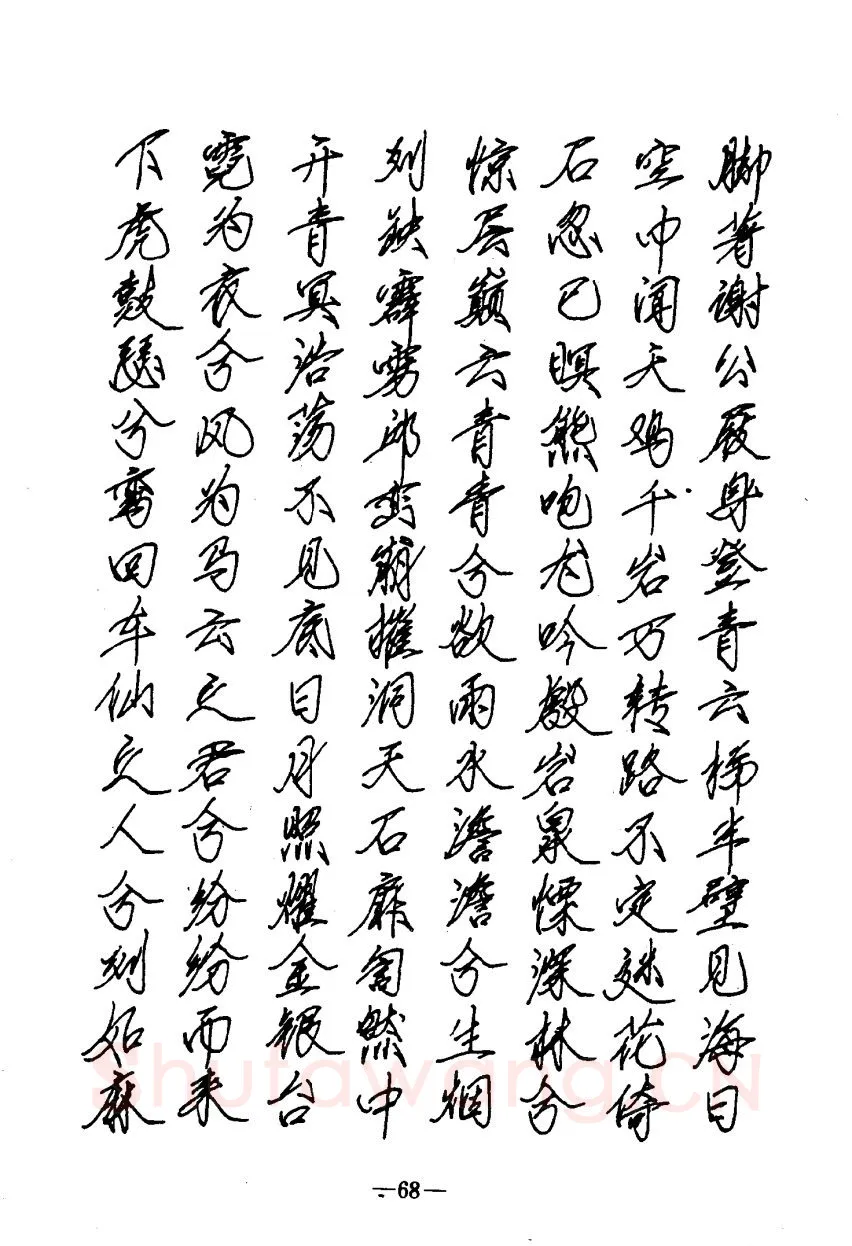 脚著谢公屐身登青云梯半壁见海日
空中闻天鸡千岩万转路不定迷花倚
石忽已暝熊咆龙吟殷岩泉慄深林兮
惊层巅云青青兮欲雨水澹澹兮生烟
列缺霹雳邱峦崩摧洞天石扉訇然中
开青冥浩荡不见底日月照耀金银台
霓为衣兮风为马云之君兮纷纷而来
下虎鼓瑟兮鸾回车仙之人兮列如麻
—68—
Shufawang.CN